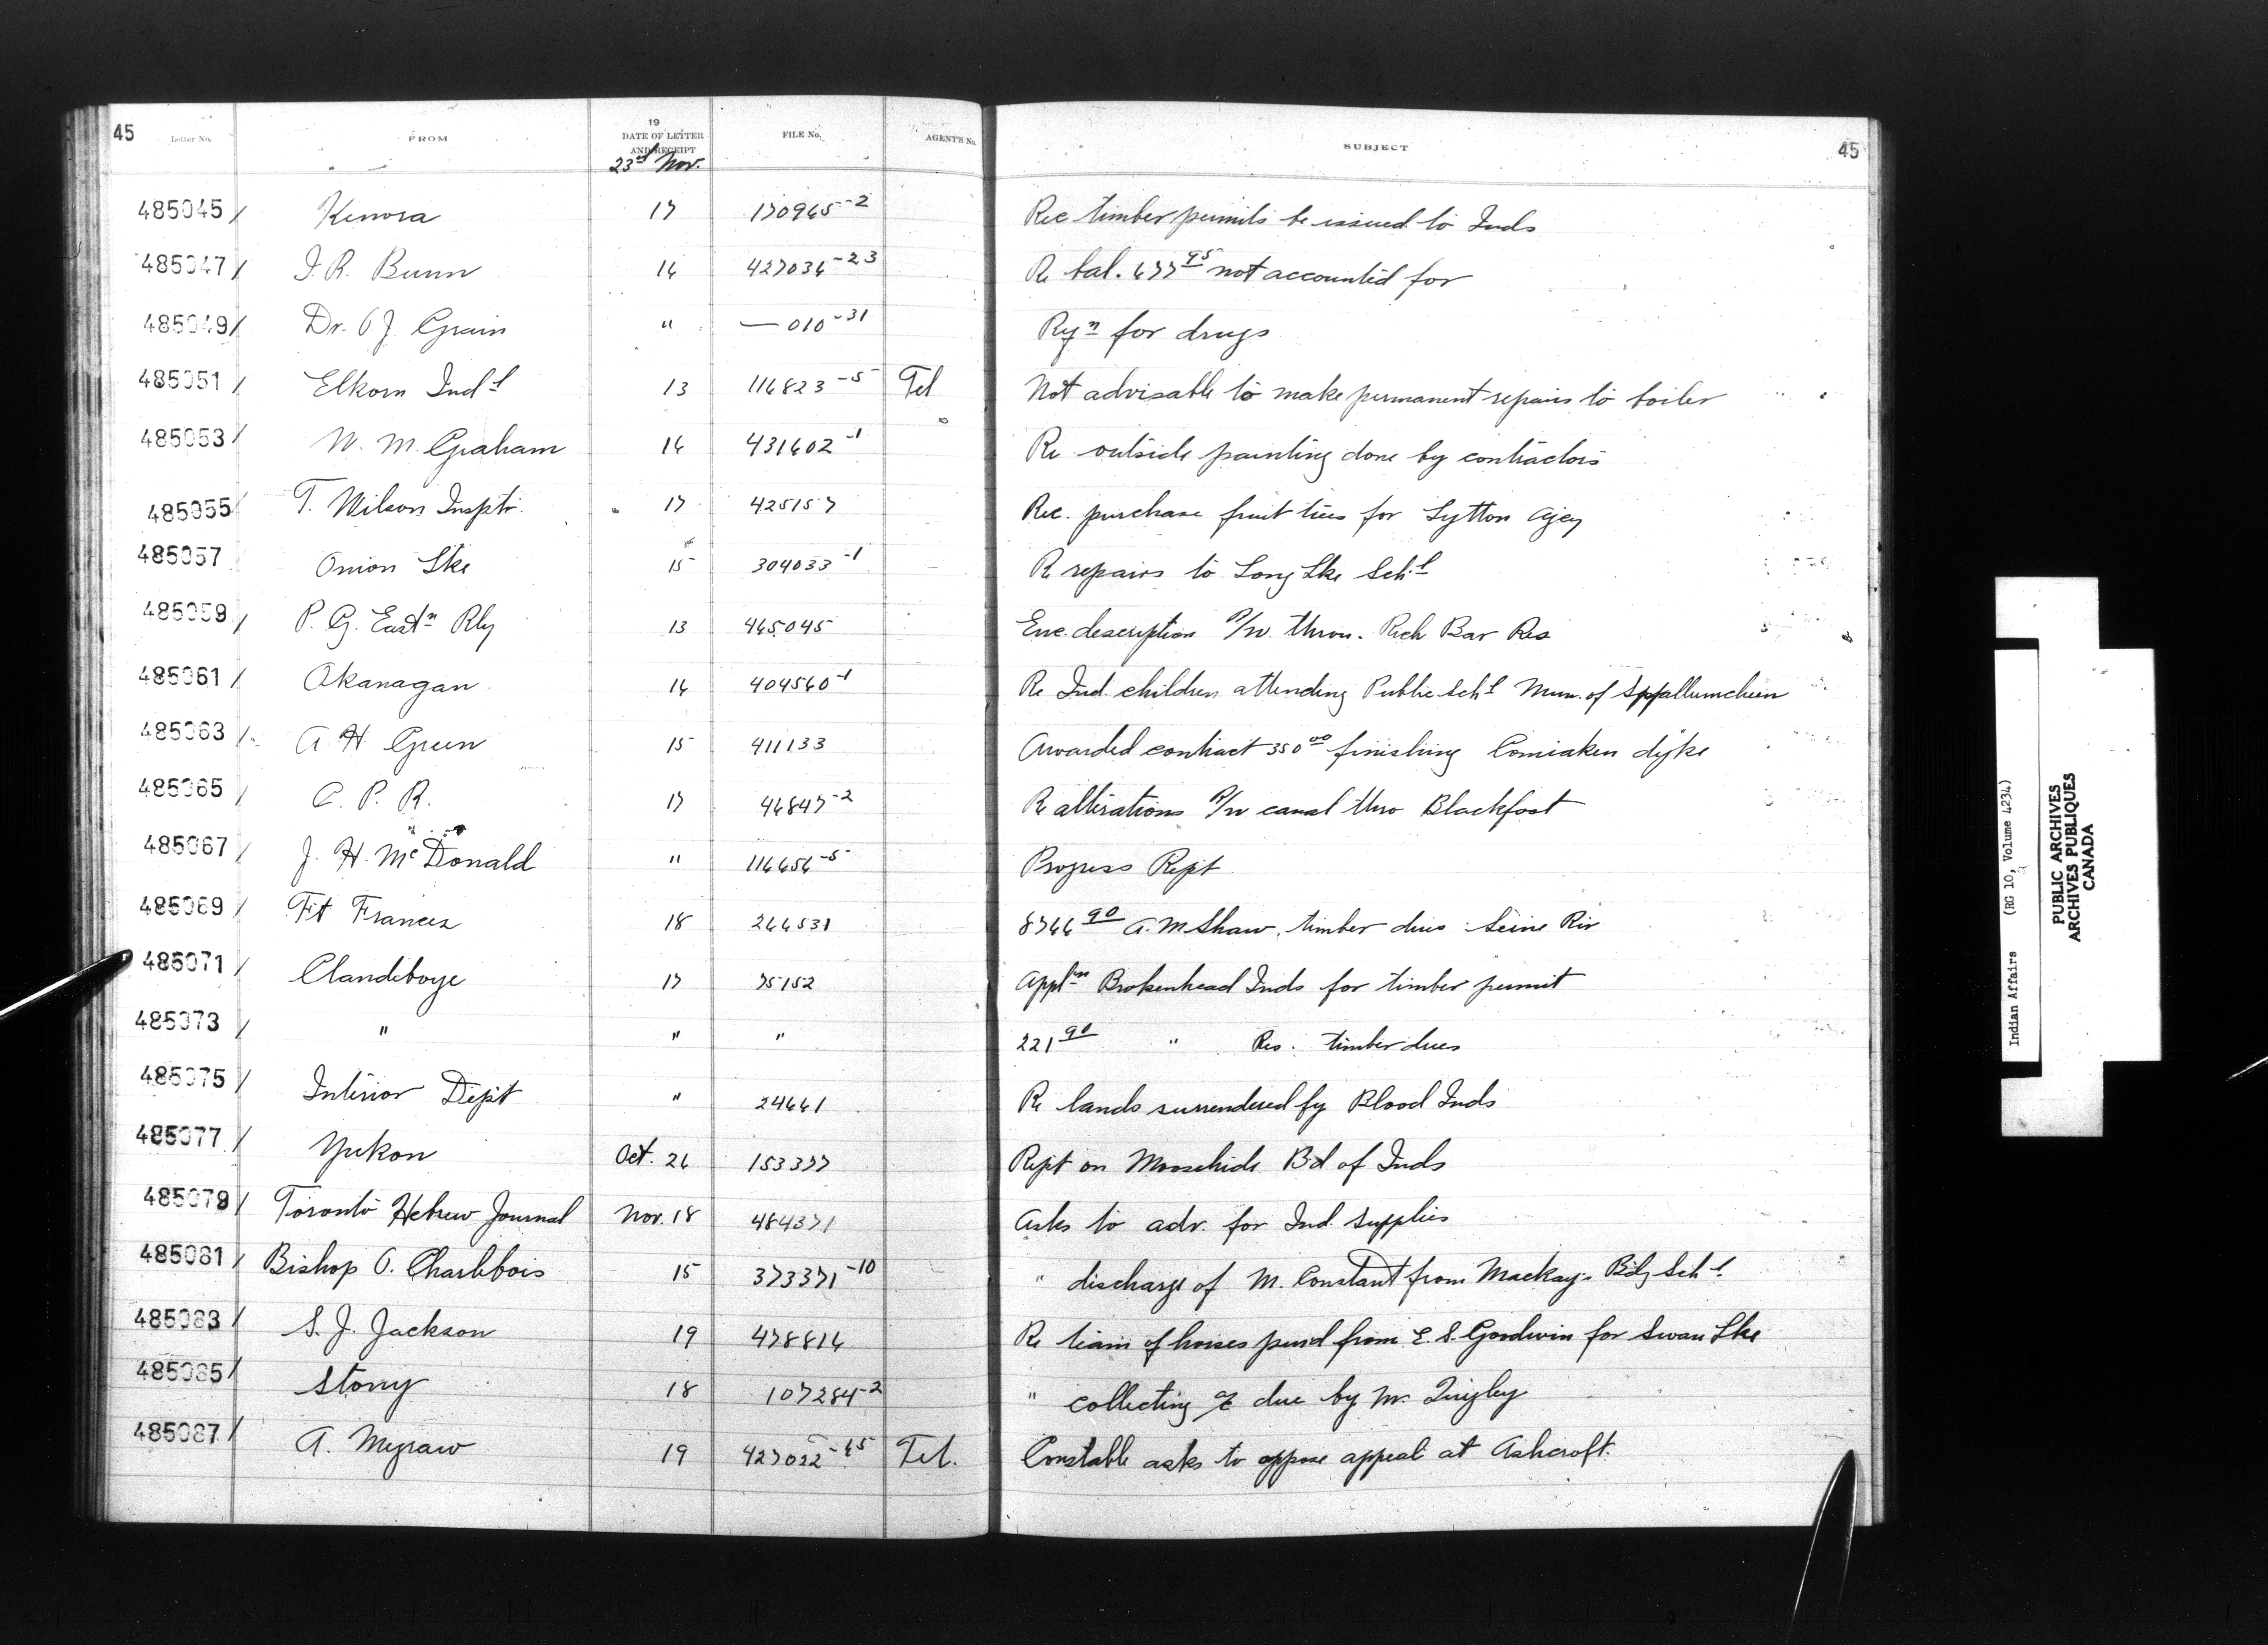 45 Letter No. FROM 19 DATE OF LETTER AND RECEIPT FILE No. AGENT'S No. SUBJECT 45
23rd Nov.
485045 / Kenora 17 170965-2 Rec timber permits be issued to Inds
485047 / J. R. Bunn 16 427036-23 Re bal. 677 95 not accounted for
485049 / Dr. O. J. Grain " — 010-31 Rqn for drugs
485051 / Elkorn Indl 13 116823-5 Tel Not advisable to make permanent repairs to boiler
485053 / W. M. Graham 16 431602-1 Re outside painting done by contractors
485055 / T. Wilson Insptr. 17 425157 Rec. purchase fruit trees for Lytton Agcy
485057 Onion Lke 15 304033-1 Re repairs to Long Lke Schl
485059 / P. G. Eastn Rly 13 465045 Enc. description R/W throu. Rich Bar Res
485061 / Okanagan 16 404560-1 Re Ind. children attending Public Schl Mun. of Spallumcheen
485063 / A. H. Green 15 411133 Awarded contract 350 00 finishing Comiaken dyke
485065 / C. P. R. 17 46847-2 Re alterations R/W canal thro Blackfoot
485067 / J. H. McDonald " 116656-5 Progress Rept
485069 / Ft Frances 18 266531 8766 90 A. M Shaw, timber dues Seine Riv
485071 / Clandeboye 17 75152 Appln Brokenhead Inds for timber permit
485073 / " " " 221 90 " Res. timber dues
485075 / Interior Dept " 24661 Re lands surrendered by Blood Inds
485077 / Yukon Oct. 26 153377 Rept on Moosehide Bd of Inds
485079 / Toronto Hebrew Journal Nov. 18 484371 Asks to adv. for Ind. supplies
485081 / Bishop O. Charlebois 15 373371-10 " discharge of M. Constant from Mackay's Bdg Schl
485083 / S. J. Jackson 19 478816 Re team of horses purd from E. S. Goodwin for Swan Lke
485085 / Stony 18 107284-2 " collecting a/c due by M. Quigley
485087 / A. Megraw 19 427022-65 Tel. Constable asks to oppose appeal at Ashcroft.
Indian Affairs (RG 10, Volume 4234)
PUBLIC ARCHIVES
ARCHIVES PUBLIQUES
CANADA